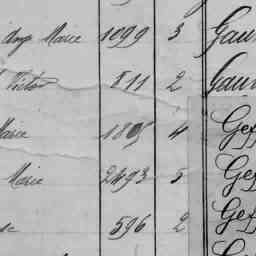 Ange Marie 1099 3 Gau
Victor 811 2 Gau
Marie 1805 4 Gef
Marie 2493 5 Gef
596 2 Gef